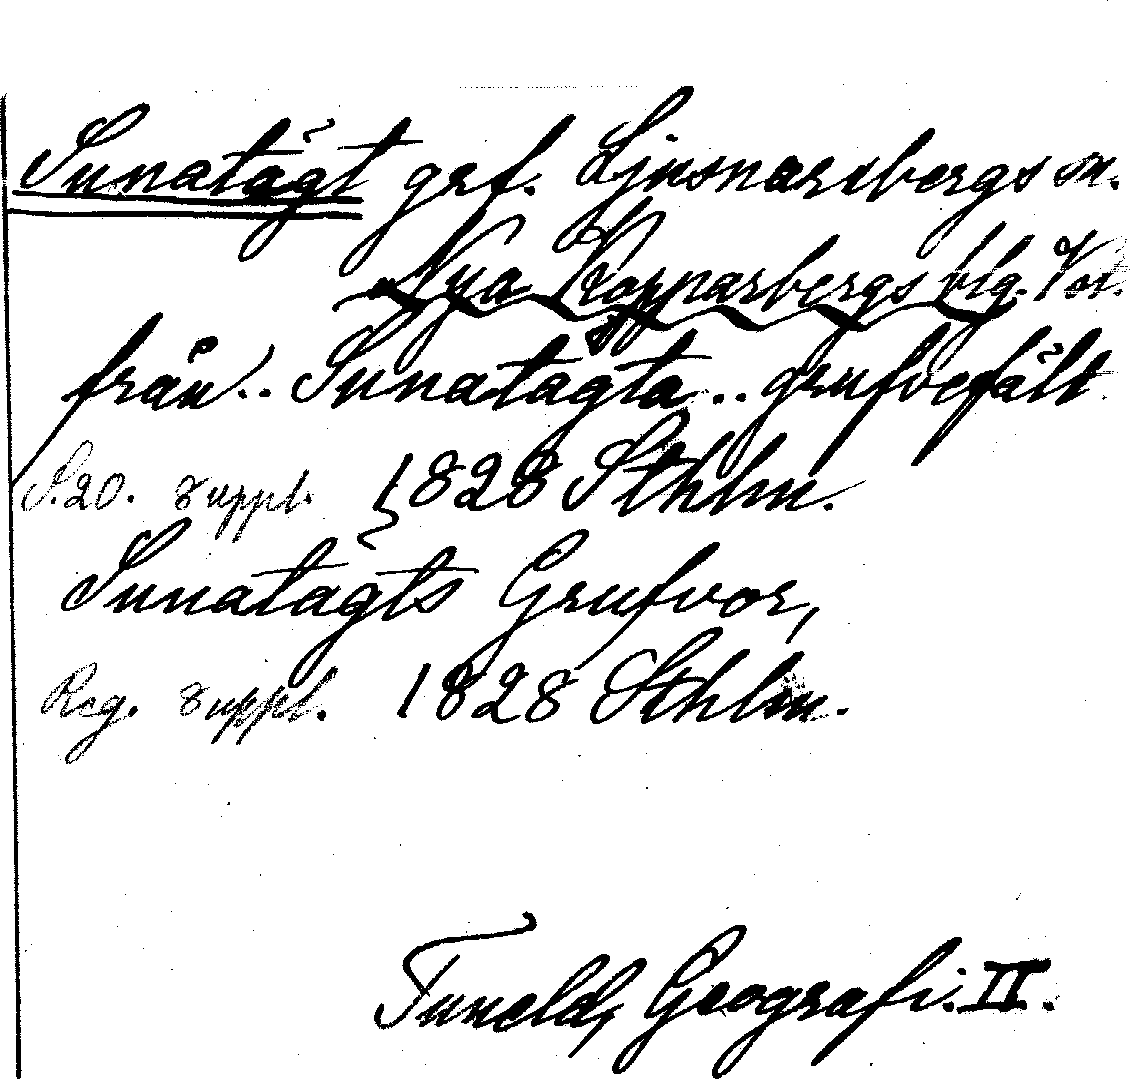 Sunatägt grf. Ljusnarsbergs sn.
Nya Kopparbergs blg. Vot.
från.. Sunatågta .. grufvefält
S. 20. suppl. 1828 Sthlm.
Sunatagts Grufvor,
Reg. suppl. 1828 Sthlm.
Tuneld, Geografi. II.